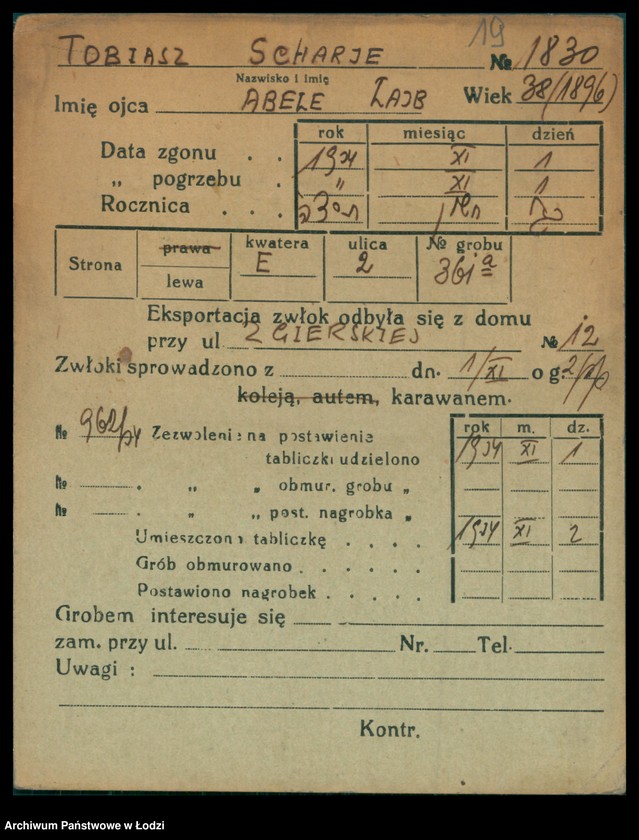 19
TOBIASZ SCHARJE № 1830
Nazwisko i imię
Imię ojca ABELE ŁAJB Wiek 38/(1896)
rok miesiąc dzień
Data zgonu . . 1934 XI 1
„ pogrzebu . „ XI 1
Rocznica . . .
Strona prawa lewa kwatera E ulica 2 № grobu 361a
Eksportacja zwłok odbyła się z domu
przy ul ZGIERSKIEJ № 12
Zwłoki sprowadzono z dn. 1/XI o g. 2/pp
koleją, autem, karawanem.
rok m. dz.
№ 962/34 Zezwolenie na postawienie
tabliczki udzielono 1934 XI 1
№ . „ „ obmur. grobu „
№ . „ „ post. nagrobka „
Umieszczono tabliczkę . . . . 1934 XI 2
Grób obmurowano . . . . .
Postawiono nagrobek . . . . .
Grobem interesuje się
zam. przy ul. Nr. Tel.
Uwagi :
Kontr.
Archiwum Państwowe w Łodzi